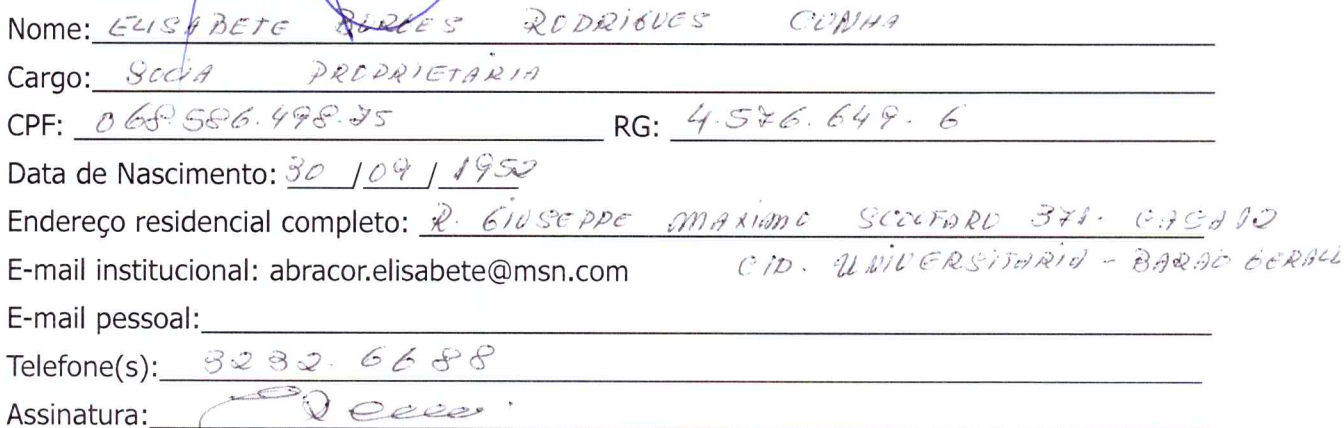 Nome: ELISABETE BORGES RODRIGUES CUNHA
Cargo: SOCIA PROPRIETARIA
CPF: 068.586.498.75 RG: 4.576.649.6
Data de Nascimento: 30 / 09 / 1952
Endereço residencial completo: R. GIUSEPPE MAXIMO SCOLFARO 371. CASA 12
E-mail institucional: abracor.elisabete@msn.com CID. UNIVERSITARIA - BARAO GERALL
E-mail pessoal:
Telefone(s): 3232.6688
Assinatura: